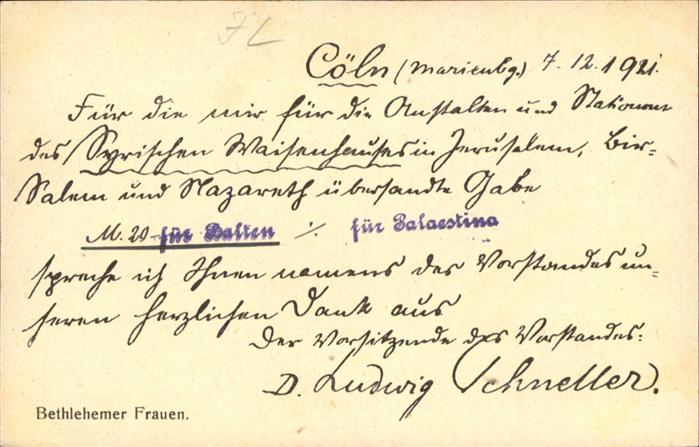 FL
Cöln (Marienbg.) 7.12.1921.
Für die mir für die Anstalten und Stationen
des Syrischen Waisenhauses in Jerusalem, Bir-
Salem und Nazareth übersandte Gabe
M. 20 für Balten ./. für Palaestina
spreche ich Ihnen namens des Vorstandes un-
seren herzlichen Dank aus
Der Vorsitzende des Vorstandes:
D. Ludwig Schneller.
Bethlehemer Frauen.